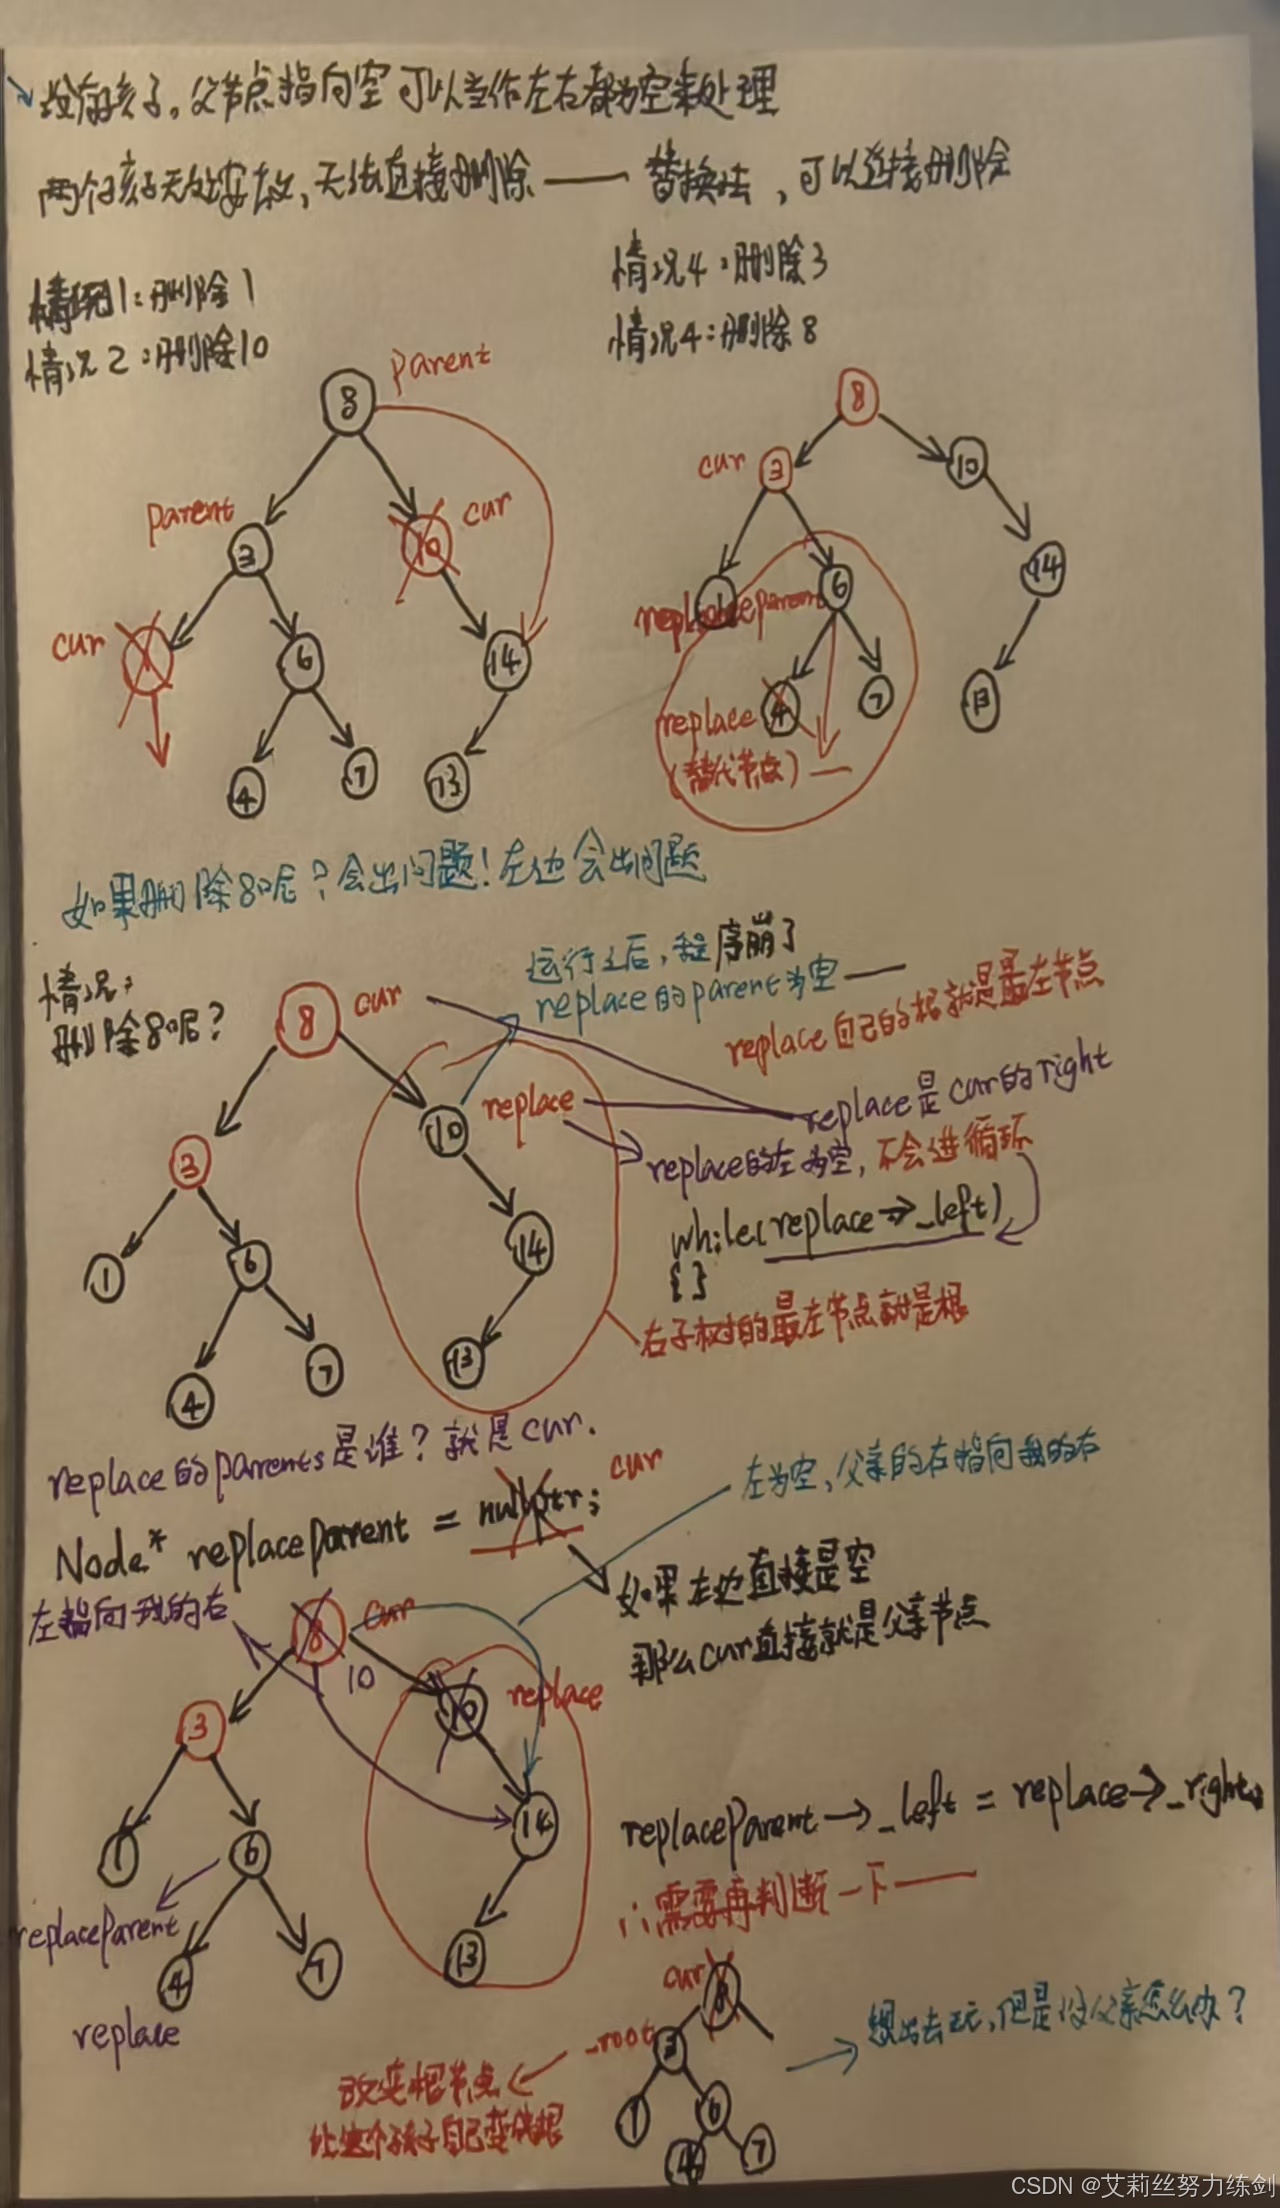 没有孩子。父节点指向空 可以当作左右都为空来处理
两个孩子无处安放,无法直接删除—— 替换法,可以直接删除
情况1:删除1
情况2:删除10
情况4:删除3
情况4:删除8
parent
8
parent
3
10
cur
cur
1
6
14
4
7
13
8
cur
3
10
1
replaceparent
6
14
replace
4
7
13
(替代节点)
如果删除8呢?会出问题!左边会出问题
情况:
删除8呢?
运行之后,程序崩了
replace的parent为空——
replace自己的根就是最左节点
8
cur
replace
replace是cur的right
10
3
replace的左为空,不会进循环
while(replace->_left)
{}
14
1
6
右子树的最左节点就是根
13
4
7
replace的parents是谁?就是cur.
cur
左为空,父亲的右指向我的右
Node* replaceparent = nullptr;
如果左边直接是空
那么cur直接就是父亲节点
左指向我的右
8
cur
10
3
10
replace
14
replaceParent->_left = replace->_right;
需要再判断一下——
1
6
replaceParent
4
7
13
replace
cur
8
_root
3
想出去玩,但是没父亲怎么办?
改变根节点
让这个孩子自己变成根
1
6
4
7
CSDN @艾莉丝努力练剑